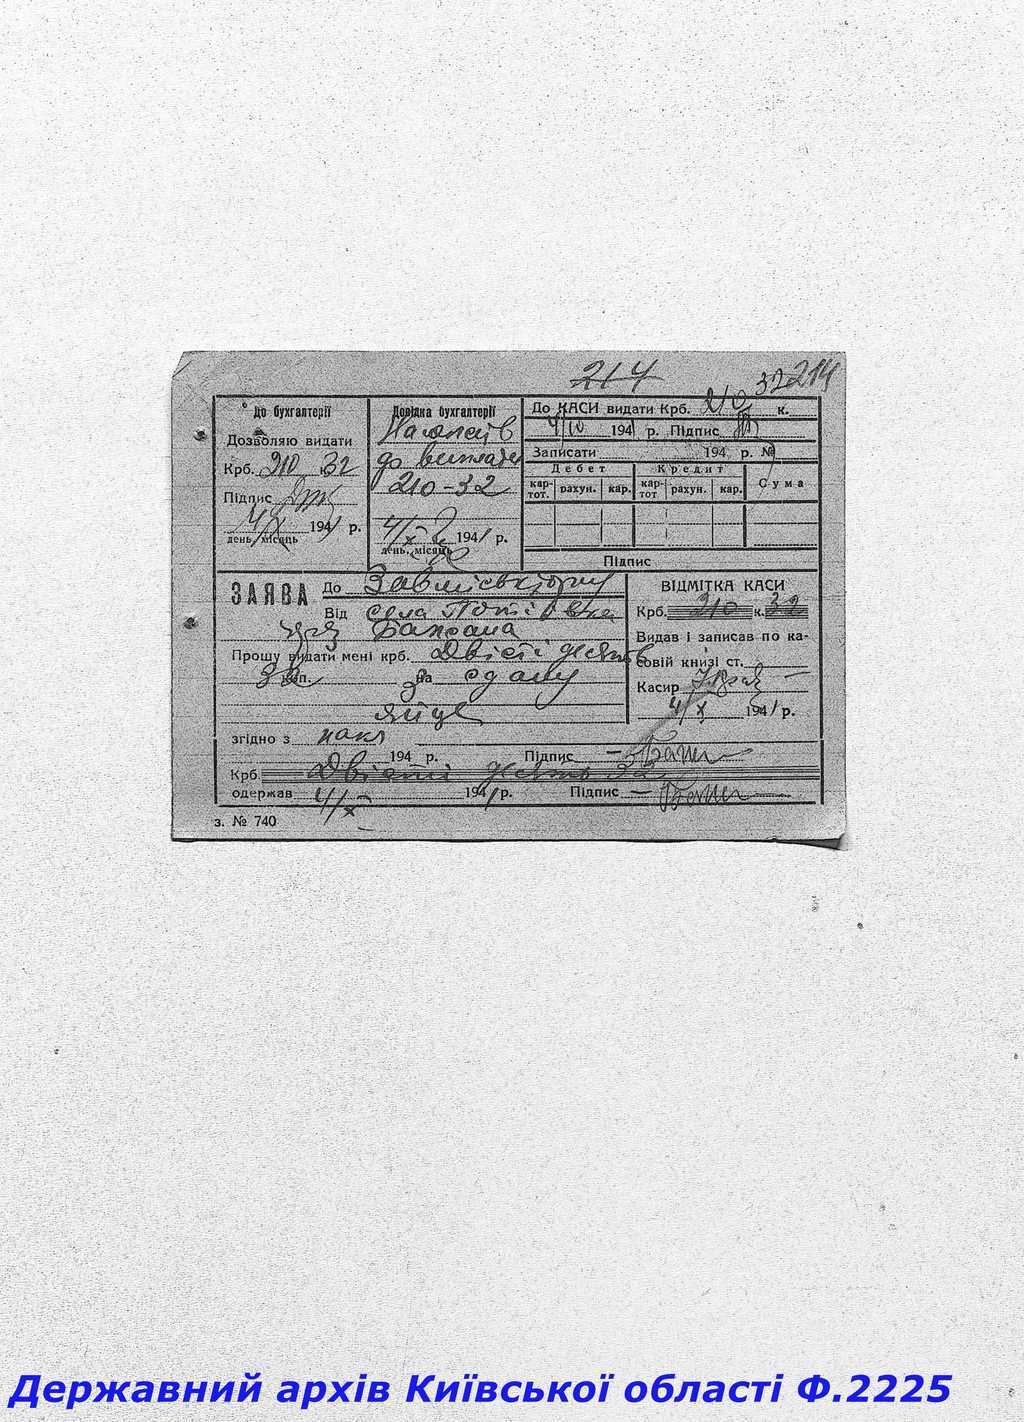 214
32 214
До бухгалтерії
Дозволяю видати
Крб. 210 к. 32
Підпис
4/X 1941 р.
день, місяць
Довідка бухгалтерії
до виплати
210-32
4/X 1941 р.
день, місяць
До КАСИ видати Крб. 210 к.
4/IX 1941 р. Підпис
Записати 194 р. №
Дебет Кредит Сума
кар-тот. рахун. кар. кар-тот рахун. кар.
Підпис
ЗАЯВА До
Від села
Прошу видати мені крб. Двісті десять
32 коп. За здану
яйце
згідно з накл
194 р. Підпис
Крб. Двісті десять 32
одержав 4/X 1941 р. Підпис
ВІДМІТКА КАСИ
Крб. 210 к. 32
Видав і записав по ка-
совій книзі ст.
Касир
4/X 1941 р.
з. № 740
Державний архів Київської області Ф.2225